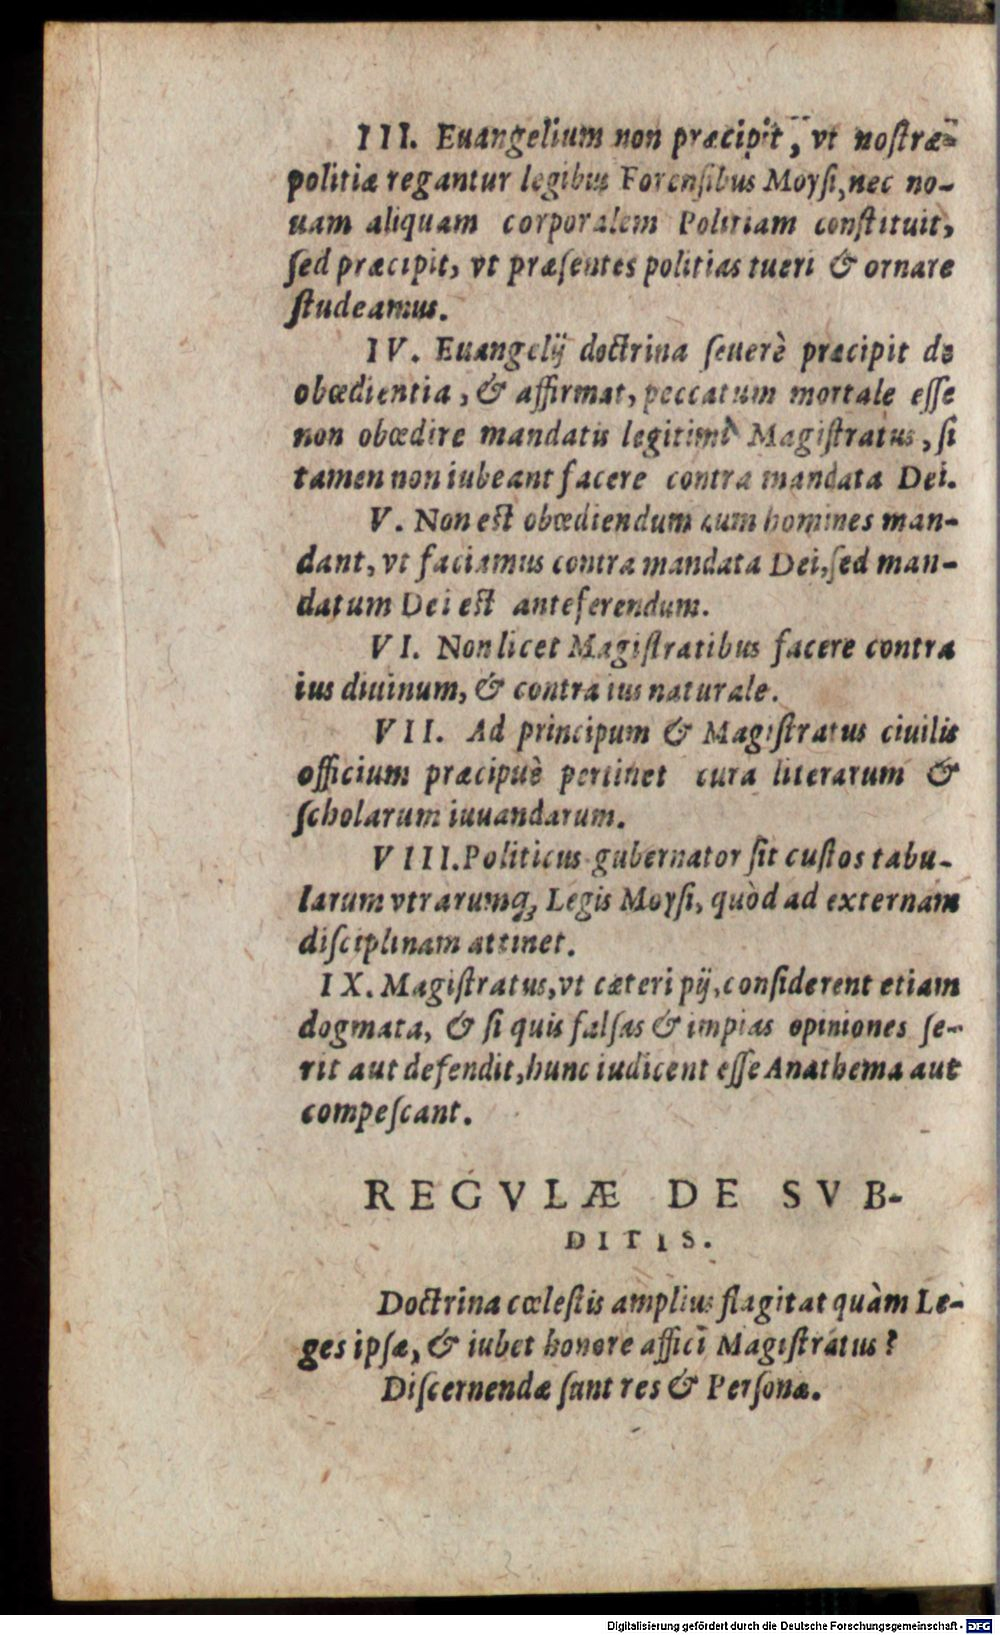 III. Euangelium non præcipit, vt nostræ
politiæ regantur legibus Forensibus Moysi, nec no-
uam aliquam corporalem Politiam constituit,
sed præcipit, vt præsentes politias tueri & ornare
studeamus.
IV. Euangelij doctrina seuerè præcipit de
obœdientia, & affirmat, peccatum mortale esse
non obœdire mandatis legitimi Magistratus, si
tamen non iubeant facere contra mandata Dei.
V. Non est obœdiendum cum homines man-
dant, vt faciamus contra mandata Dei, sed man-
datum Dei est anteferendum.
VI. Non licet Magistratibus facere contra
ius diuinum, & contra ius naturale.
VII. Ad principum & Magistratus ciuilis
officium præcipuè pertinet cura literarum &
scholarum iuuandarum.
VIII. Politicus gubernator sit custos tabu-
larum vtrarumq; Legis Moysi, quòd ad externam
disciplinam attinet.
IX. Magistratus, vt cæteri pij, considerent etiam
dogmata, & si quis falsas & impias opiniones se-
rit aut defendit, hunc iudicent esse Anathema aut
compescant.
REGVLÆ DE SVB-
DITIS.
Doctrina cœlestis amplius flagitat quàm Le-
ges ipsæ, & iubet honore affici Magistratus?
Discernendæ sunt res & Personæ.
Digitalisierung gefördert durch die Deutsche Forschungsgemeinschaft - DFG